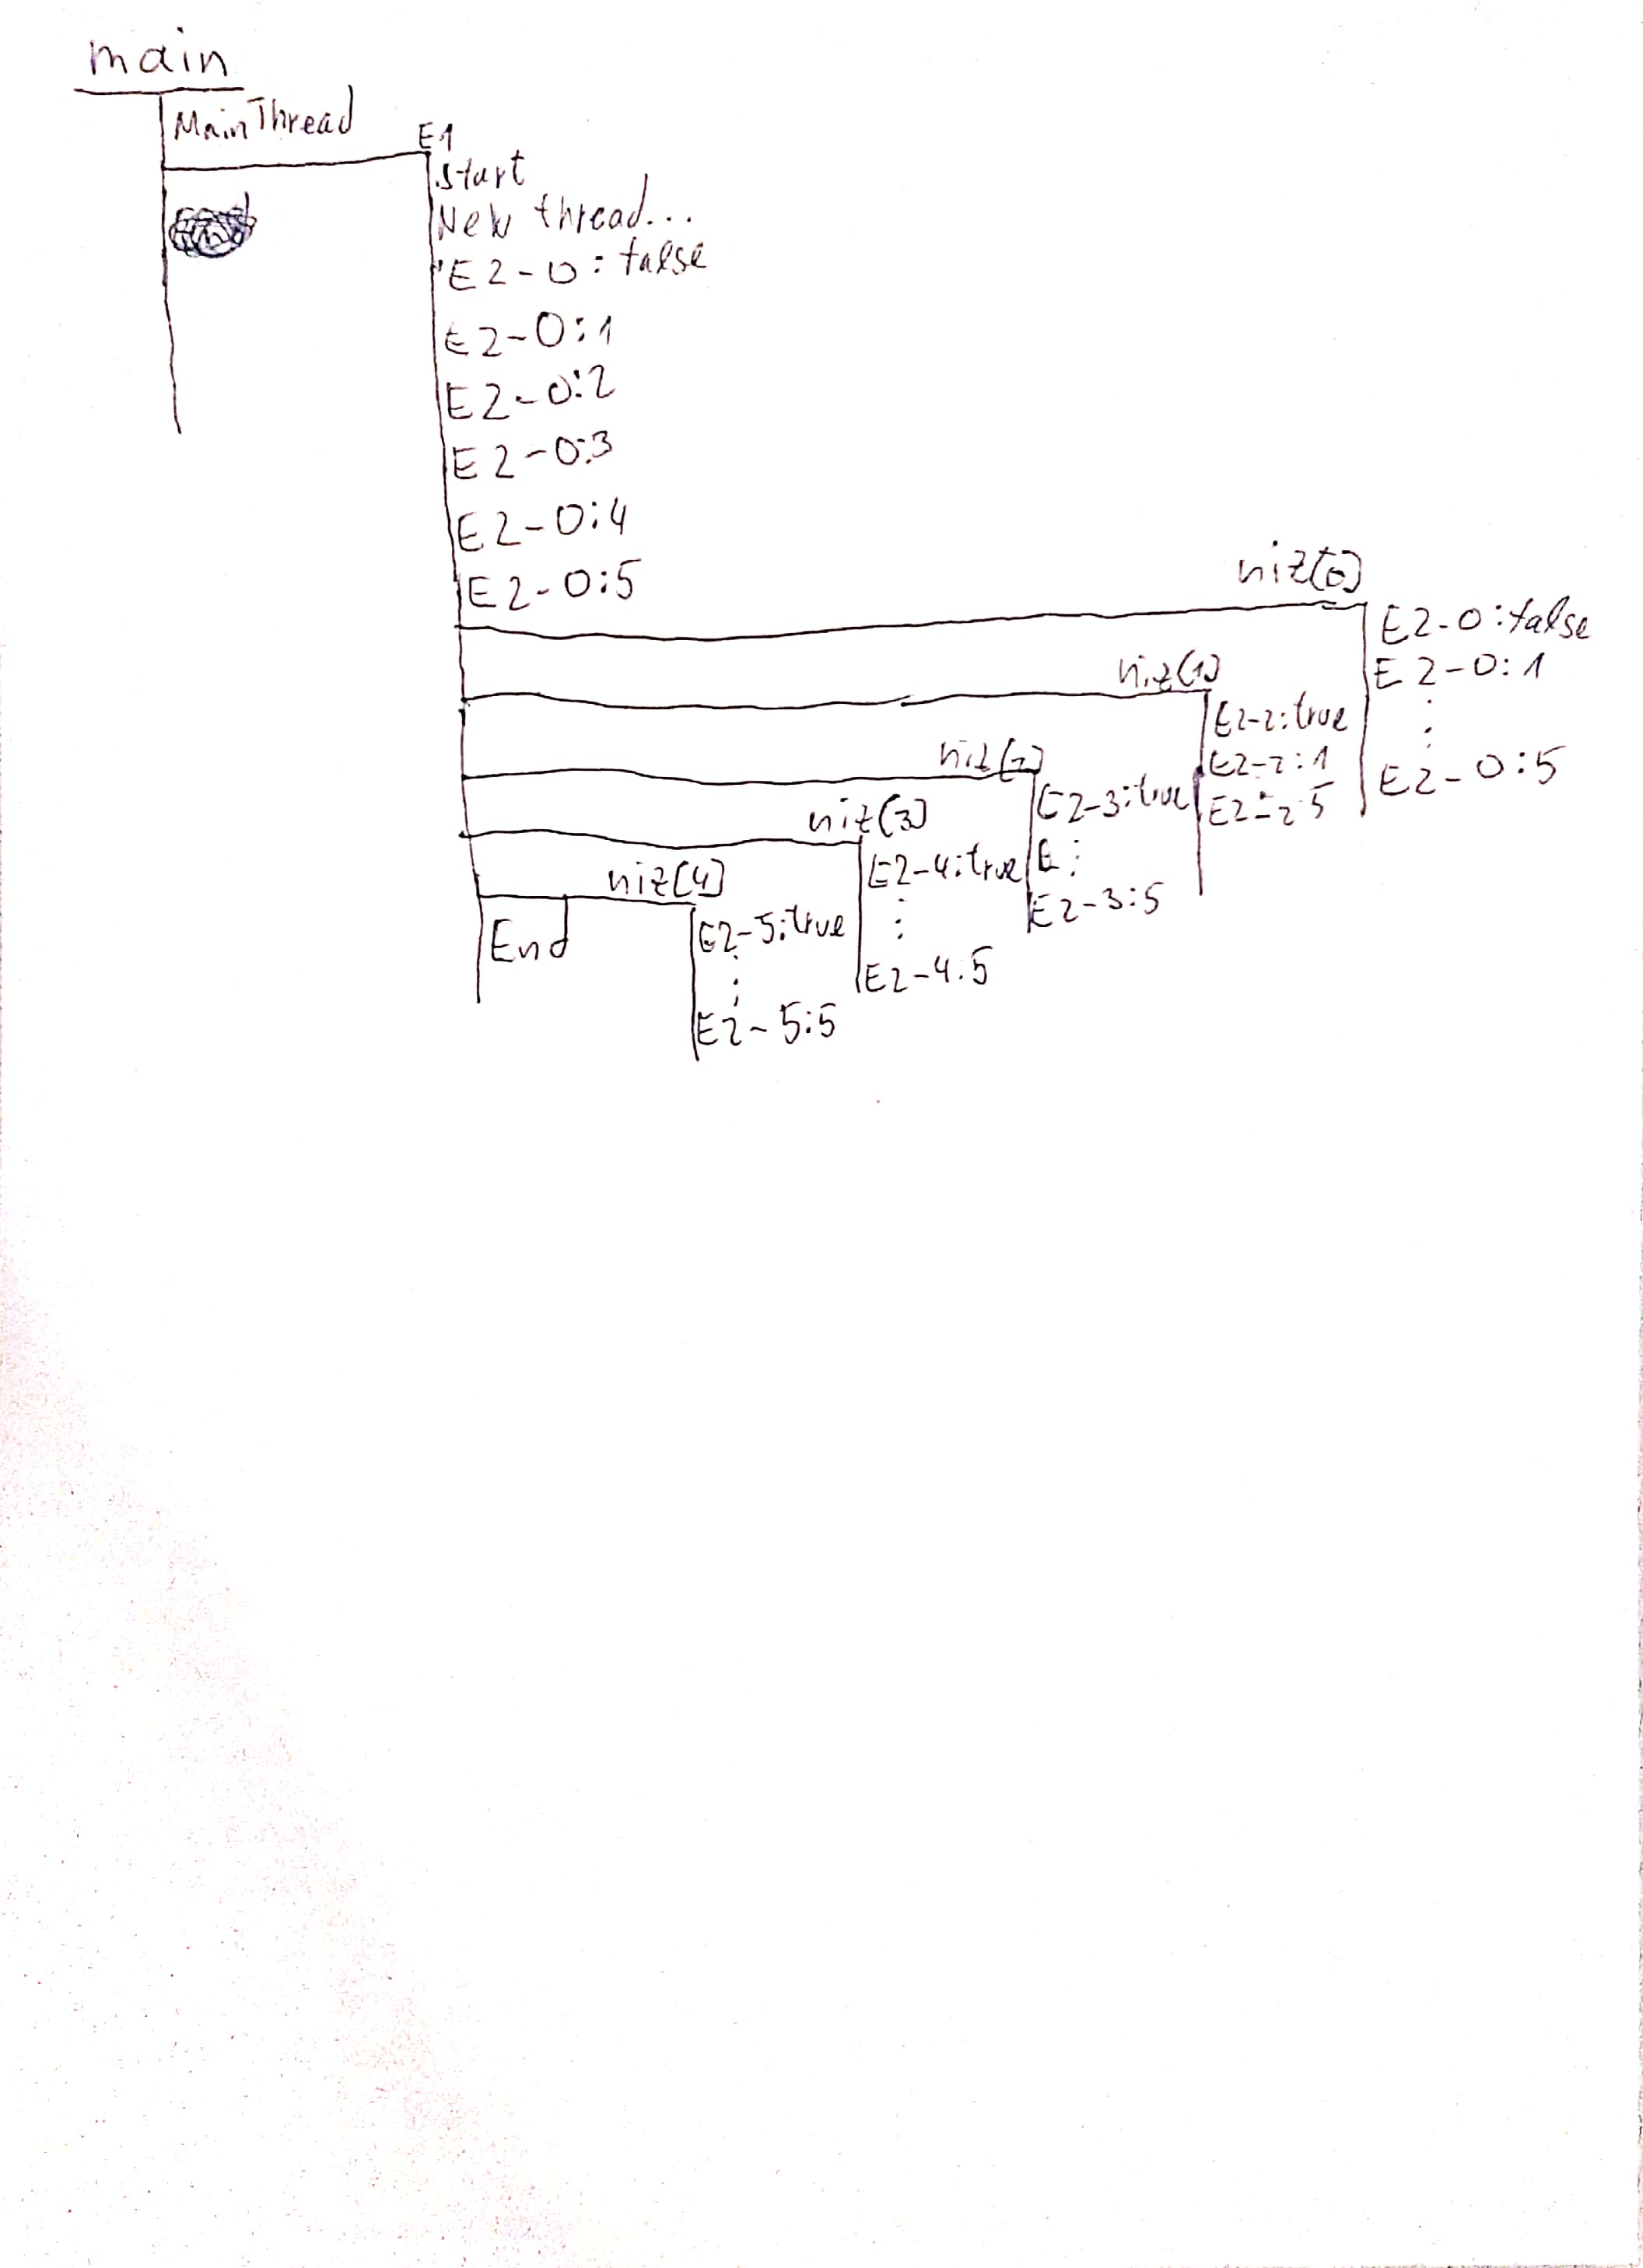 main
MainThread
E1
start
New thread...
E2-0:false
E2-0:1
E2-0:2
E2-0:3
E2-0:4
E2-0:5
niz[0]
E2-0:false
E2-0:1
:
E2-0:5
niz[1]
E2-2:true
E2-2:1
E2-2:5
niz[2]
E2-3:true
E :
E2-3:5
niz[3]
E2-4:true
:
E2-4:5
niz[4]
E2-5:true
:
E2-5:5
End